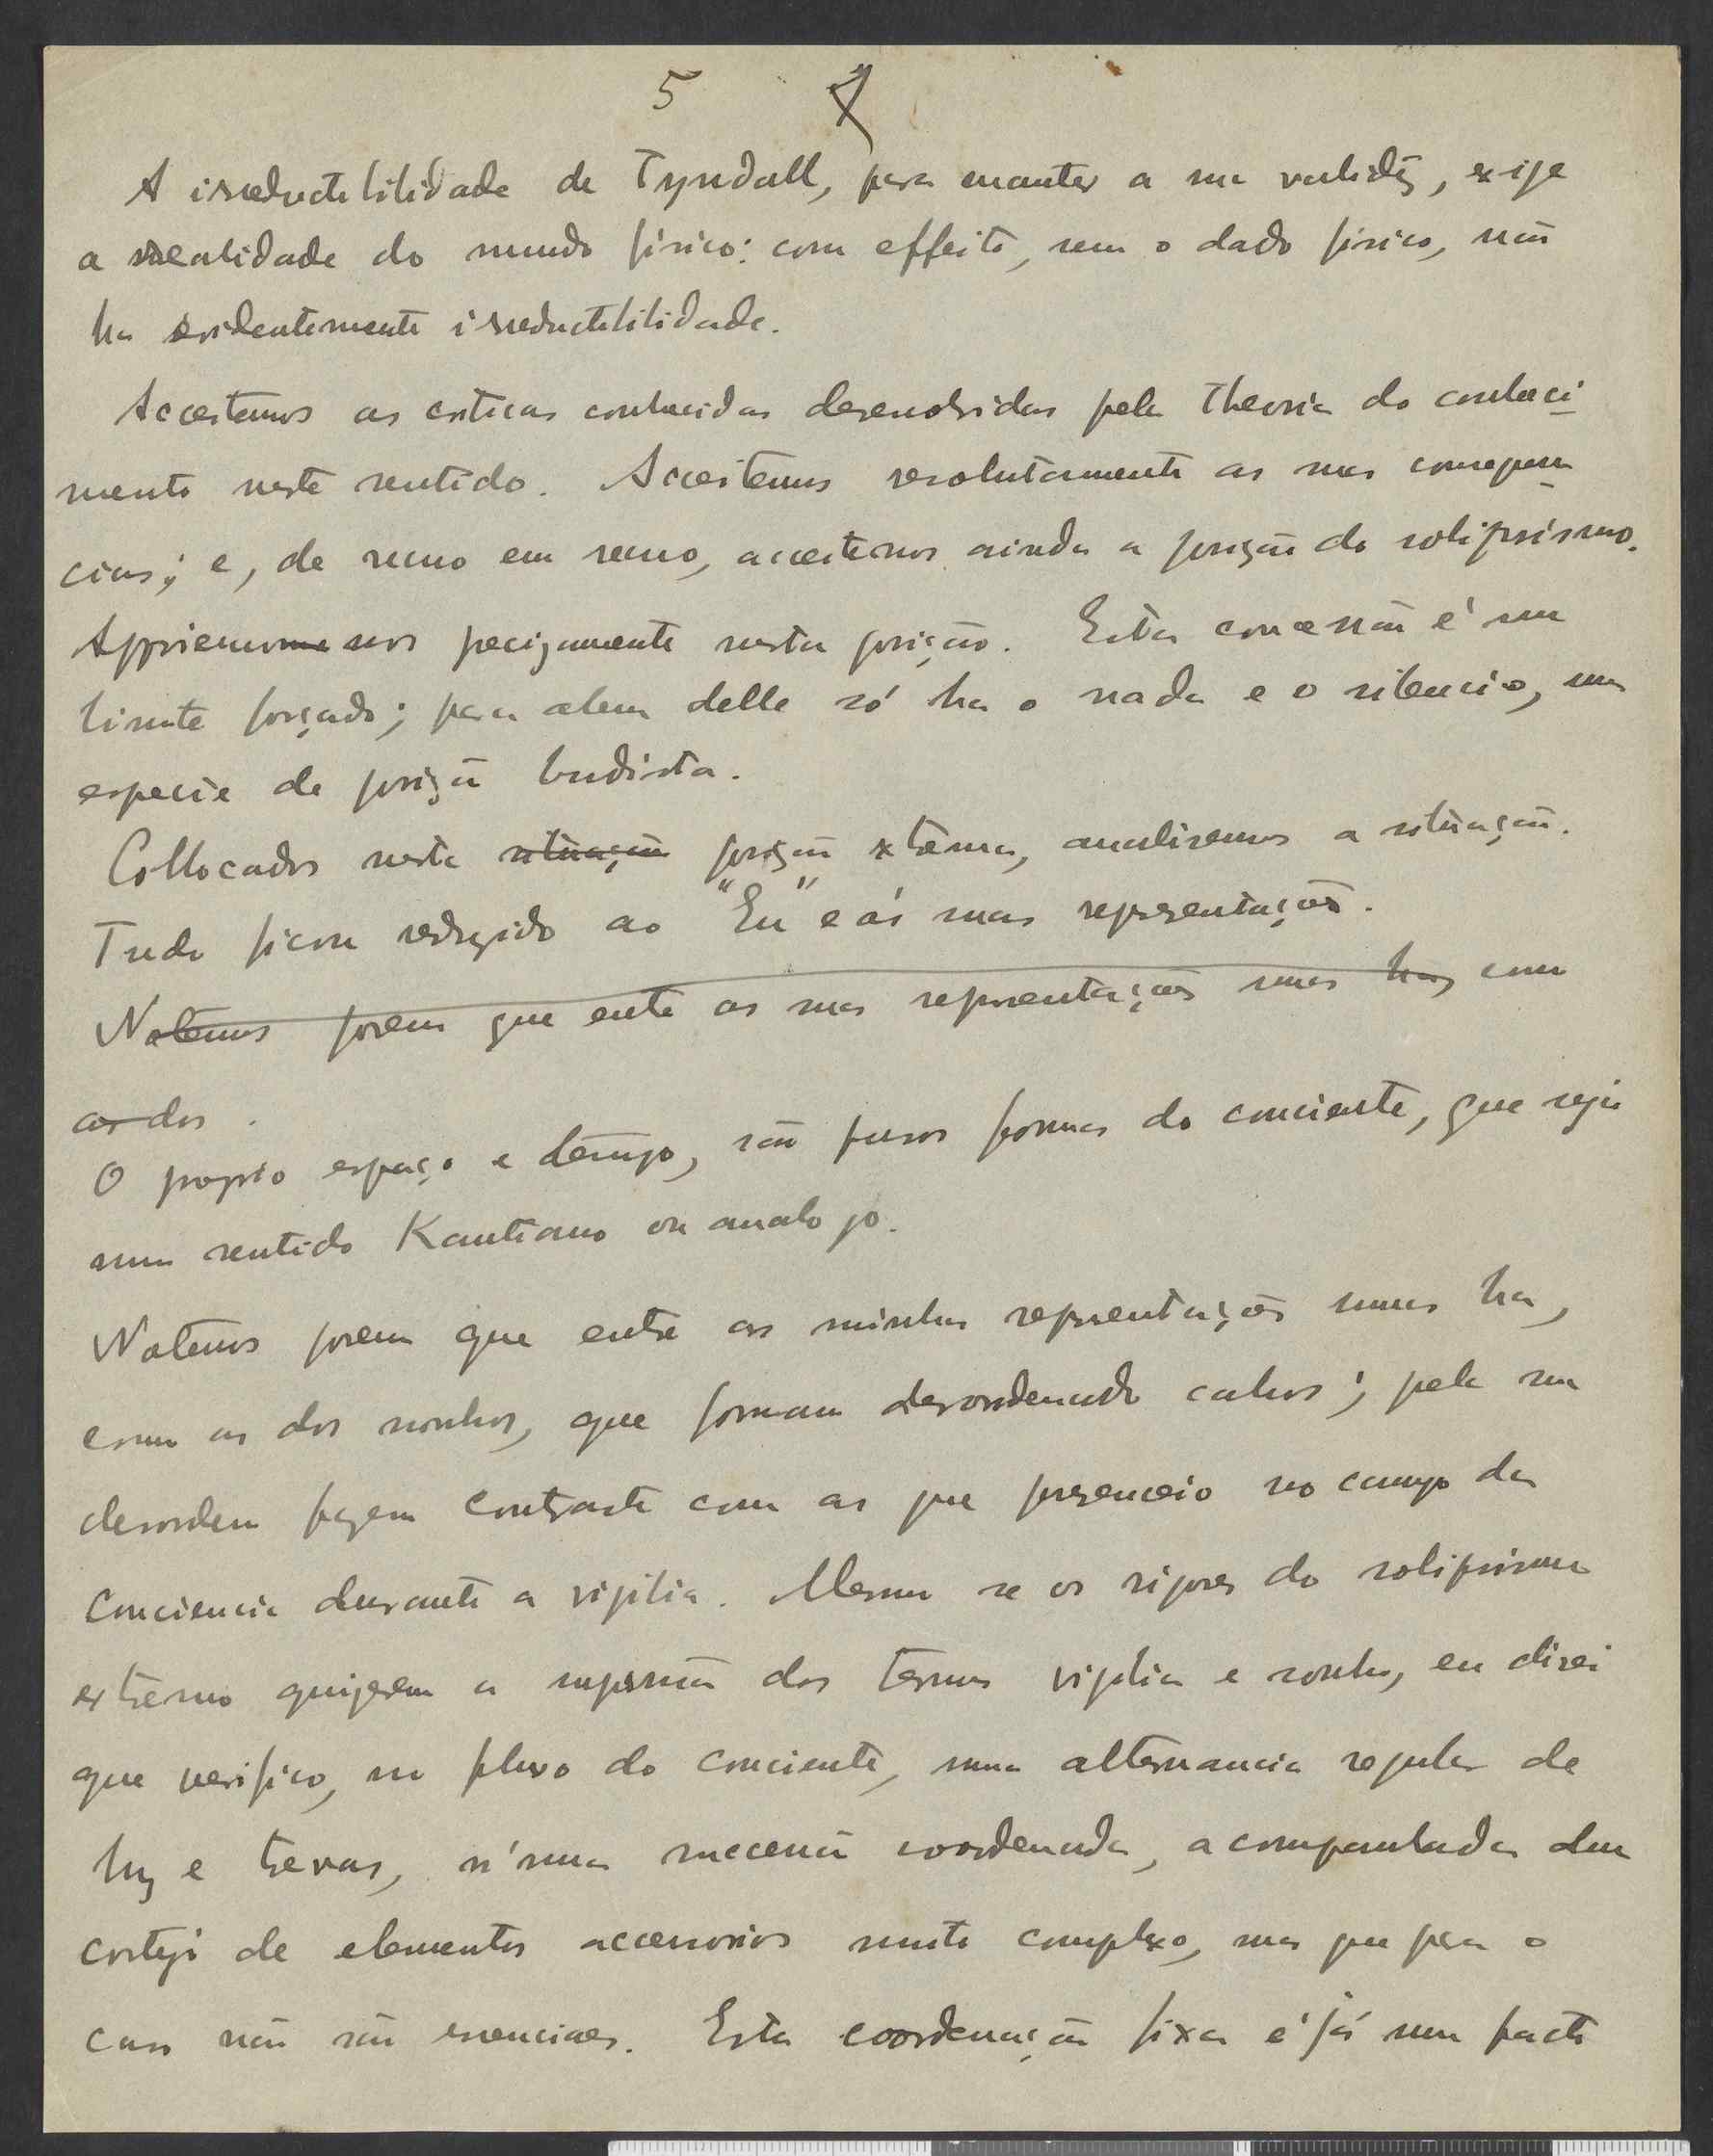 5
A irreductibilidade de Tyndall, para manter a sua validez, exige
a realidade do mundo fisico: com effeito, sem o dado fisico, não
ha evidentemente irreductibilidade.
Acceitemos as criticas conhecidas desenvolvidas pela theoria do conheci-
mento neste sentido. Acceitemos resolutamente as suas consequen-
cias; e, de recuo em recuo, acceitemos ainda a posição do solipsismo.
nos precizamente nesta posição. Esta concessão é um
limite forçado; para alem delle só ha o nada e o silencio, uma
especie de posição budista.
Collocados nesta situação posição extrema, analisemos a situação.
Tudo ficou reduzido ao "Eu" e ás suas representações.
Notemos porem que entre as suas representações umas ha, como
as dos.
O proprio espaço e tempo, são puras formas do conciente, que seja
num sentido Kantiano ou analogo.
Notemos porem que entre as minhas representações umas ha,
como as dos sonhos, que formam desordenado cahos; pela sua
desordem fazem contraste com as que presenceio no campo da
conciencia durante a vigilia. Mesmo se os rigores do solipsismo
extremo quizerem a supressão dos termos vigilia e sonho, eu direi
que verifico, no fluxo do conciente, uma alternancia regular de
luz e trevas, n'uma sucessão coordenada, acompanhada dum
cortejo de elementos accessorios muito complexo, mas que para o
caso não são essenciaes. Esta coordenação fixa é já um facto